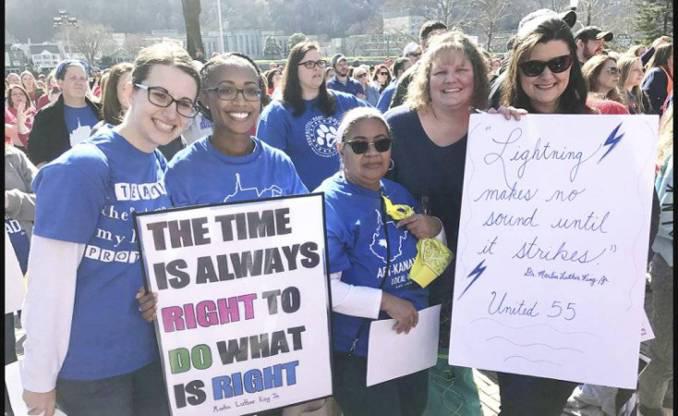 TEAC
the
my
THE TIME
IS ALWAYS
RIGHT TO
DO WHAT
IS RIGHT
Martin Luther King Jr
AFT-KANAW
LOCAL
"Lightning
makes no
sound until
it strikes."
Dr. Martin Luther King, Jr.
United 55